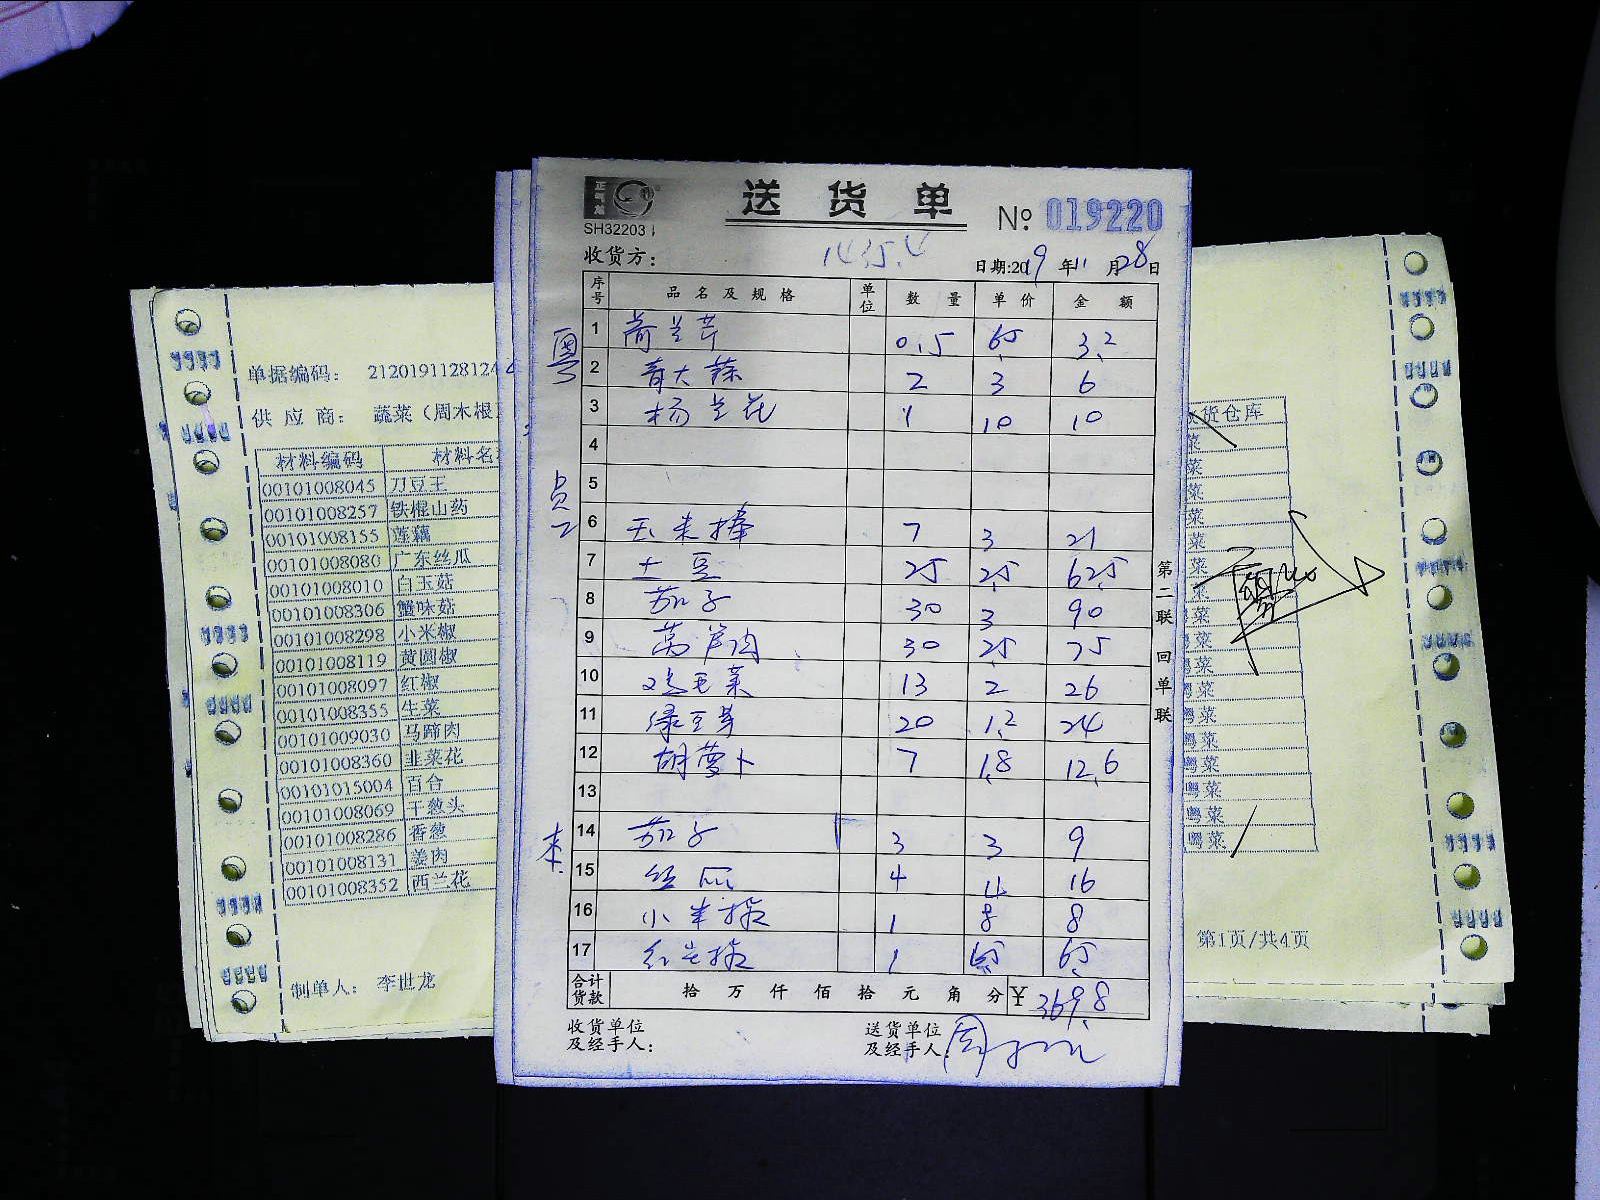 送货单
№ 019220
SH32203
1435.4
收货方：
日期:2019年11月28日
序号 品名及规格 单位 数量 单价 金额
粤
1 荷兰芹 0.5 6.5 3.2
2 青大蒜 2 3 6
3 杨兰花 1 10 10
4
员工
5
6 玉米棒 7 3 21
7 土豆 25 2.5 62.5
8 茄子 30 3 90
9 莴芦肉 30 2.5 75
10 鸡毛菜 13 2 26
11 绿豆芽 20 1.2 24
12 胡萝卜 7 1.8 12.6
13
14 茄子 3 3 9
15 丝瓜 4 4 16
16 小米椒 1 8 8
17 红尖椒 1 6.5 6.5
合计货款 拾万仟佰拾元角分 ￥ 369.8
收货单位及经手人：
送货单位及经手人：
第二联 回单联
单据编码： 21201911281244
供应商： 蔬菜（周木根
材料编码 材料名
00101008045 刀豆王
00101008257 铁棍山药
00101008155 莲藕
00101008080 广东丝瓜
00101008010 白玉菇
00101008306 蟹味菇
00101008298 小米椒
00101008119 黄圆椒
00101008097 红椒
00101008355 生菜
00101009030 马蹄肉
00101008360 韭菜花
00101015004 百合
00101008069 干葱头
00101008286 香葱
00101008131 姜肉
00101008352 西兰花
制单人： 李世龙
货仓库
菜
菜
菜
菜
菜
菜
菜
菜
菜
菜
粤菜
粤菜
粤菜
粤菜
粤菜
粤菜
粤菜
第1页/共4页